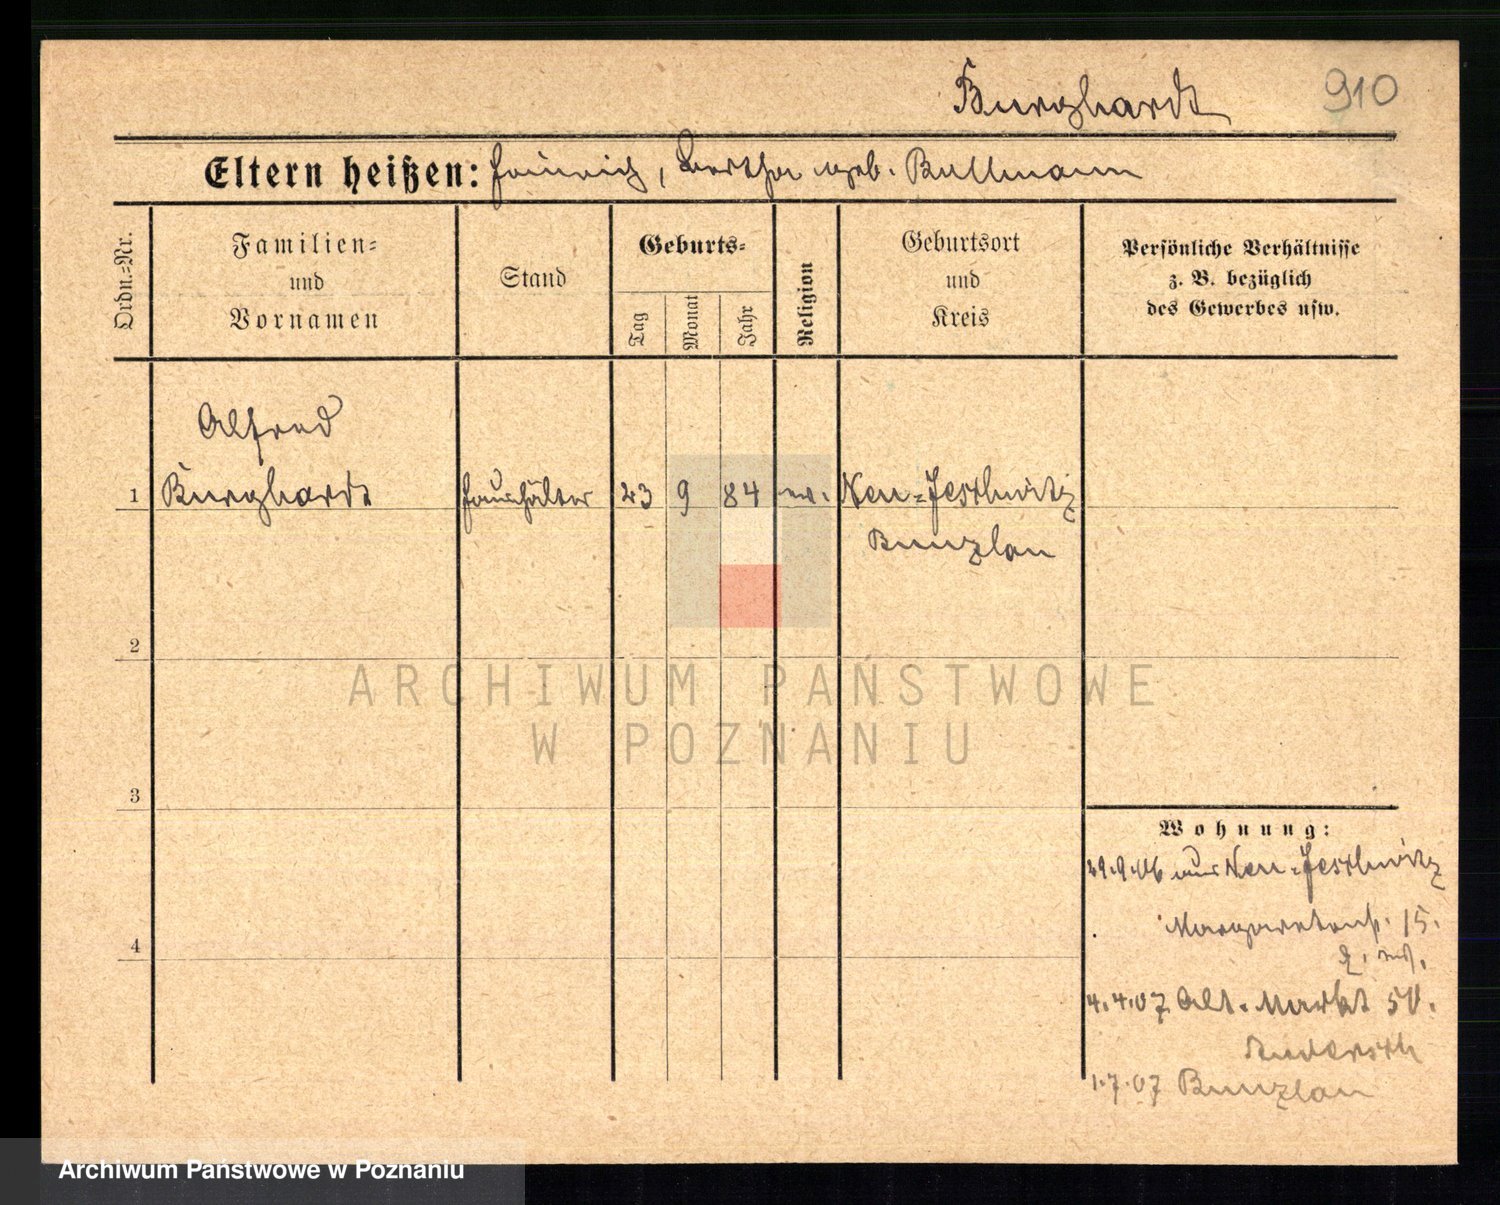 Burghardt
910
Eltern heißen: Heinrich, Bertha geb. Bullmann
Ordn.-Nr.
Familien-
und
Vornamen
Stand
Geburts-
Tag
Monat
Jahr
Religion
Geburtsort
und
Kreis
Persönliche Verhältnisse
z. B. bezüglich
des Gewerbes usw.
Alfred
1 Burghardt Haushälter 23 9 84 ev. Neu-Jeschwitz
Bunzlau
2
3
4
ARCHIWUM PAŃSTWOWE
W POZNANIU
Wohnung:
29.9.06 aus Neu-Jeschwitz
Margaretenst. 15.
4.4.07 Alt. Markt 50.
1.7.07 Bunzlau
Archiwum Państwowe w Poznaniu